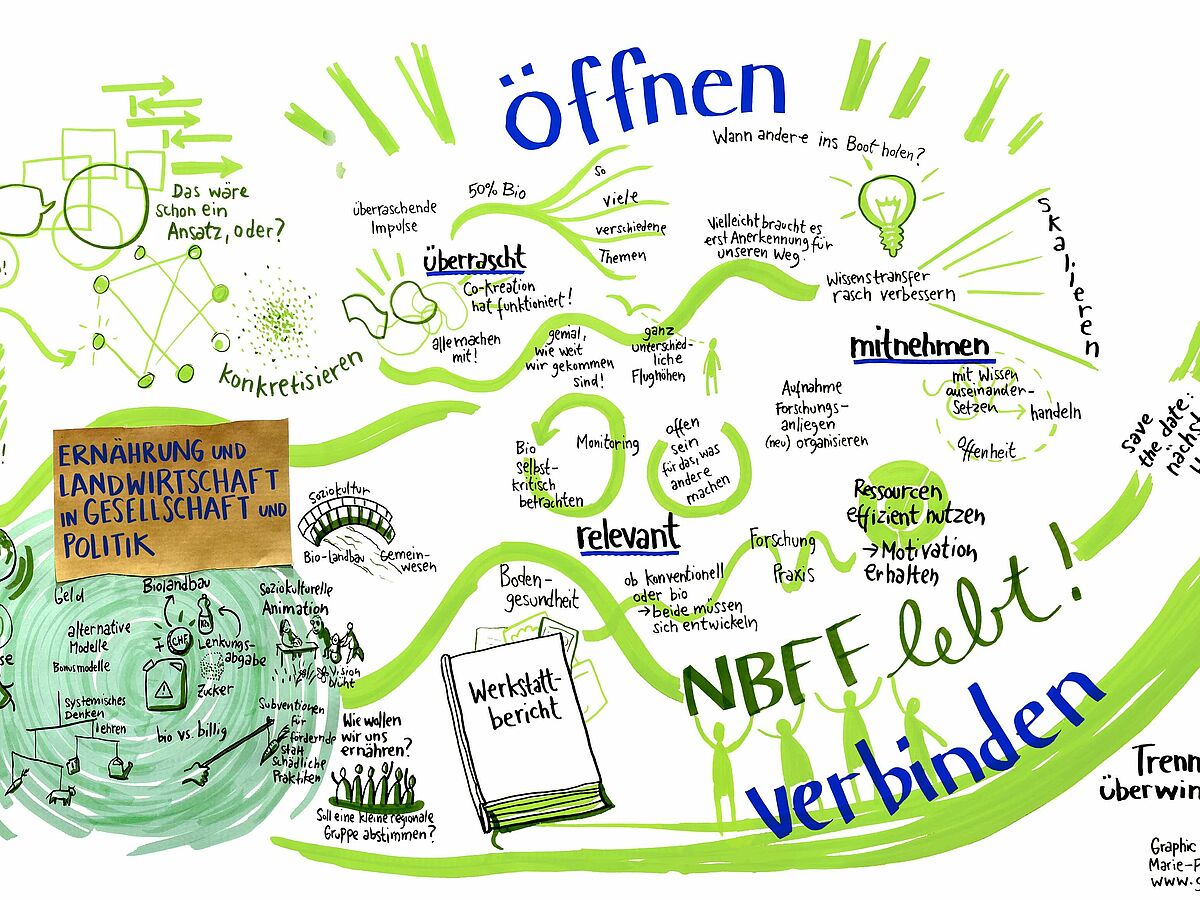 öffnen
Wann andere ins Boot holen?
Das wäre
schon ein
Ansatz, oder?
konkretisieren
überraschende
Impulse
50% Bio
so
viele
verschiedene
Themen
überrascht
Co-kreation
hat funktioniert!
alle machen
mit!
genial,
wie weit
wir gekommen
sind!
ganz
unterschied-
liche
Flughöhen
Vielleicht braucht es
erst Anerkennung für
unseren Weg!
Wissenstransfer
rasch verbessern
Skalieren
mitnehmen
mit Wissen
auseinander-
setzen
handeln
Offenheit
Aufnahme
Forschungs-
anliegen
(neu) organisieren
save
the date:
ERNÄHRUNG UND
LANDWIRTSCHAFT
IN GESELLSCHAFT UND
POLITIK
Soziokultur
Bio-landbau
Gemein-
wesen
Bio
selbst-
kritisch
betrachten
Monitoring
offen
sein
für das, was
andere
machen
relevant
Boden-
gesundheit
ob konventionell
oder bio
→ beide müssen
sich entwickeln
Forschung
Praxis
Ressourcen
effizient nutzen
→ Motivation
erhalten
Geld
alternative
Modelle
Bonusmodelle
Systemisches
Denken
lehren
Biolandbau
CHF
Lenkungs-
abgabe
Zucker
bio vs. billig
Soziokulturelle
Animation
Vision
blüht
Subventionen
für
fördernde
statt
schädliche
Praktiken
Wie wollen
wir uns
ernähren?
Soll eine kleine regionale
Gruppe abstimmen?
Werkstatt-
bericht
NBFF lebt!
verbinden
Graphic
www.